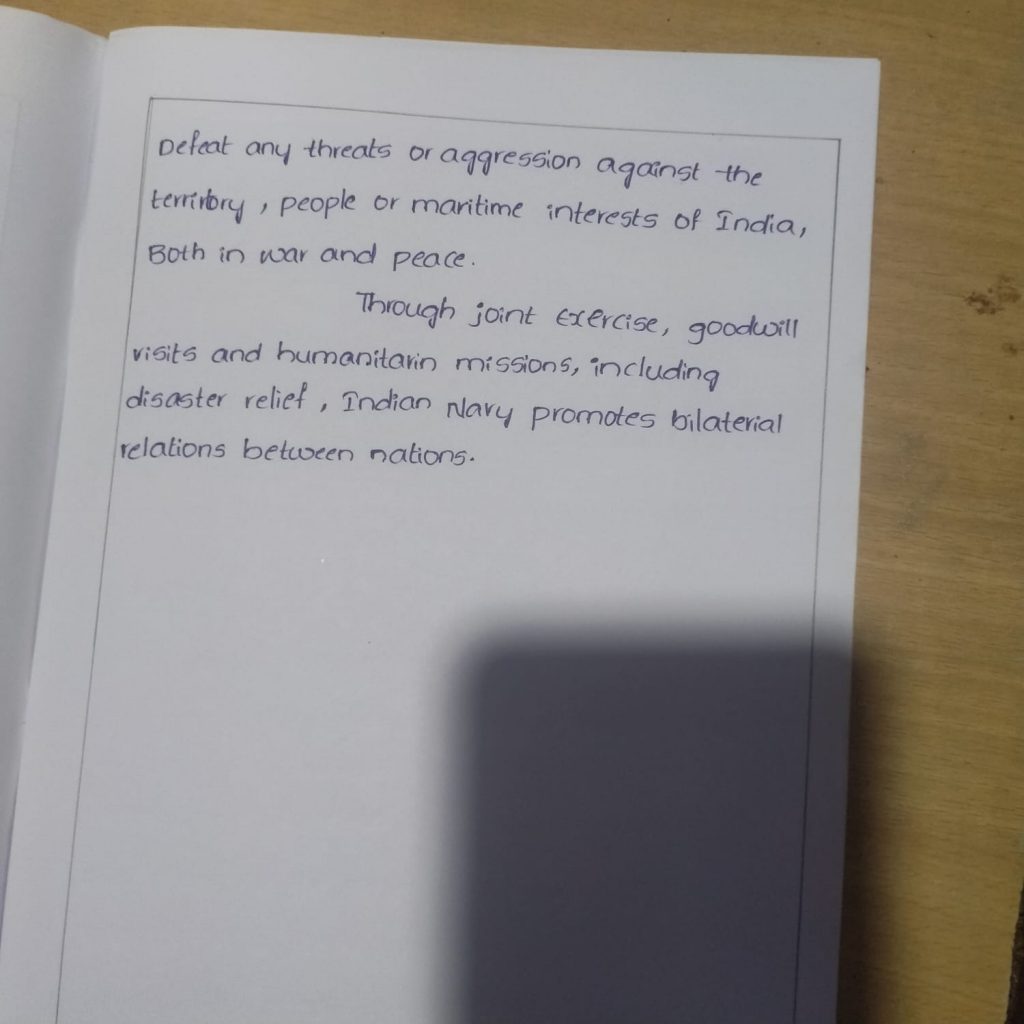 Defeat any threats or aggression against the
territory, people or maritime interests of India,
Both in war and peace.
Through joint Exercise, goodwill
visits and humanitarin missions, including
disaster relief, Indian Navy promotes bilaterial
relations between nations.